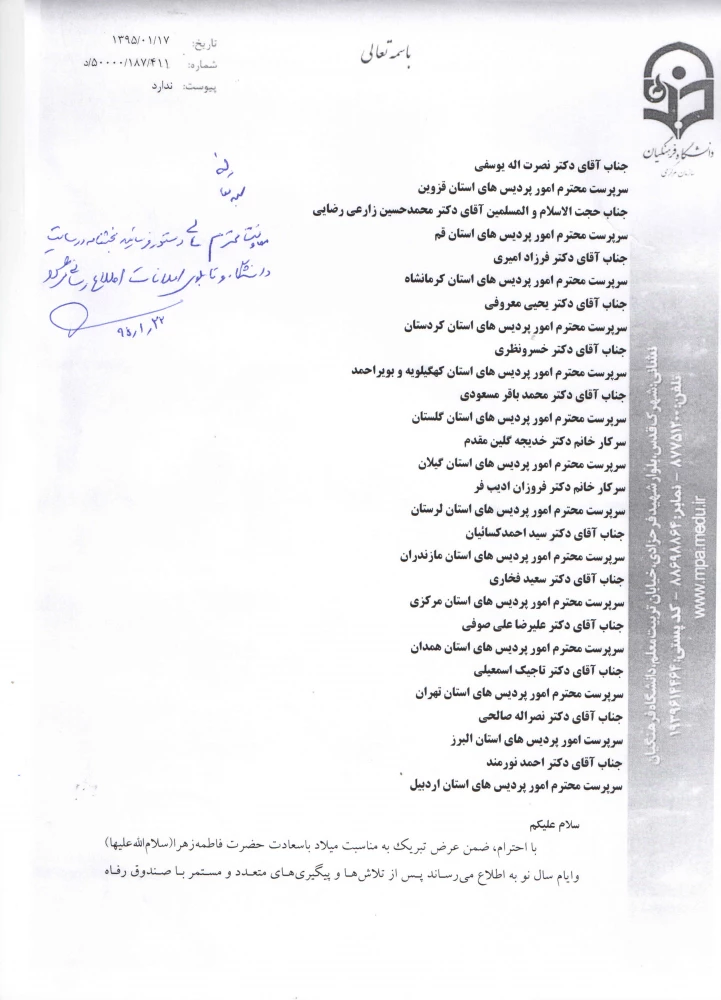 باسمه تعالی
تاریخ: ۱۳۹۵/۰۱/۱۷
شماره: ۵۰۰۰۰/۱۸۷/۴۱۱/د
پیوست: ندارد
دانشگاه فرهنگیان
سازمان مرکزی
جناب آقای دکتر نصرت اله یوسفی
سرپرست محترم امور پردیس های استان قزوین
جناب حجت الاسلام و المسلمین آقای دکتر محمدحسین زارعی رضایی
سرپرست محترم امور پردیس های استان قم
جناب آقای دکتر فرزاد امیری
سرپرست محترم امور پردیس های استان کرمانشاه
جناب آقای دکتر یحیی معروفی
سرپرست محترم امور پردیس های استان کردستان
جناب آقای دکتر خسرونظری
سرپرست محترم امور پردیس های استان کهگیلویه و بویراحمد
جناب آقای دکتر محمد باقر مسعودی
سرپرست محترم امور پردیس های استان گلستان
سرکار خانم دکتر خدیجه گلین مقدم
سرپرست محترم امور پردیس های استان گیلان
سرکار خانم دکتر فروزان ادیب فر
سرپرست محترم امور پردیس های استان لرستان
جناب آقای دکتر سید احمدکسائیان
سرپرست محترم امور پردیس های استان مازندران
جناب آقای دکتر سعید فخاری
سرپرست محترم امور پردیس های استان مرکزی
جناب آقای دکتر علیرضا علی صوفی
سرپرست محترم امور پردیس های استان همدان
جناب آقای دکتر تاجیک اسمعیلی
سرپرست محترم امور پردیس های استان تهران
جناب آقای دکتر نصراله صالحی
سرپرست امور پردیس های استان البرز
جناب آقای دکتر احمد نورمند
سرپرست محترم امور پردیس های استان اردبیل
سلام علیکم
با احترام، ضمن عرض تبریک به مناسبت میلاد باسعادت حضرت فاطمه‌زهرا(سلام‌الله‌علیها)
وایام سال نو به اطلاع می‌رساند پس از تلاش‌ها و پیگیری‌های متعدد و مستمر با صندوق رفاه
دستور فرمایید بخشنامه در سایت
دانشگاه و تابلوی اعلانات اطلاع رسانی
۹۵/۱/۲۲
نشانی:شهرک قدس،بلوار شهید فرحزادی،خیابان تربیت معلم،دانشگاه فرهنگیان
تلفن:۸۷۷۵۱۲۰۰ - نمابر:۸۸۶۹۸۸۶۴ - کد پستی:۱۹۳۹۶۱۴۴۶۴
www.mpa.medu.ir